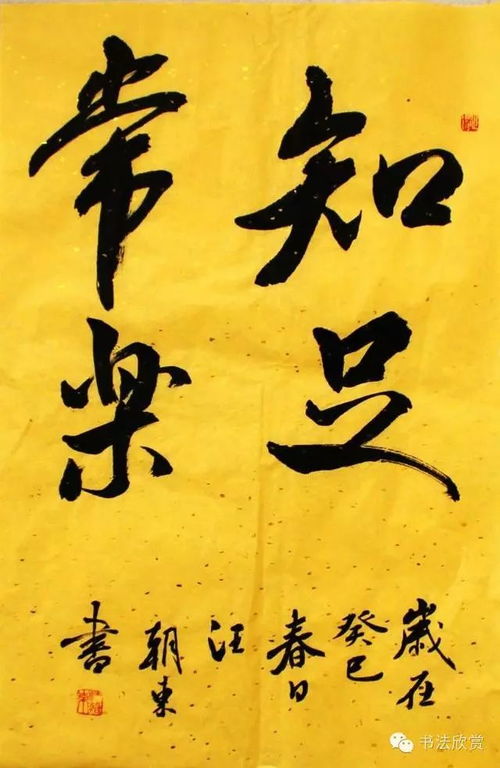 知足
常樂
歲在
癸巳
春日
汪
朝東
書
书法欣赏